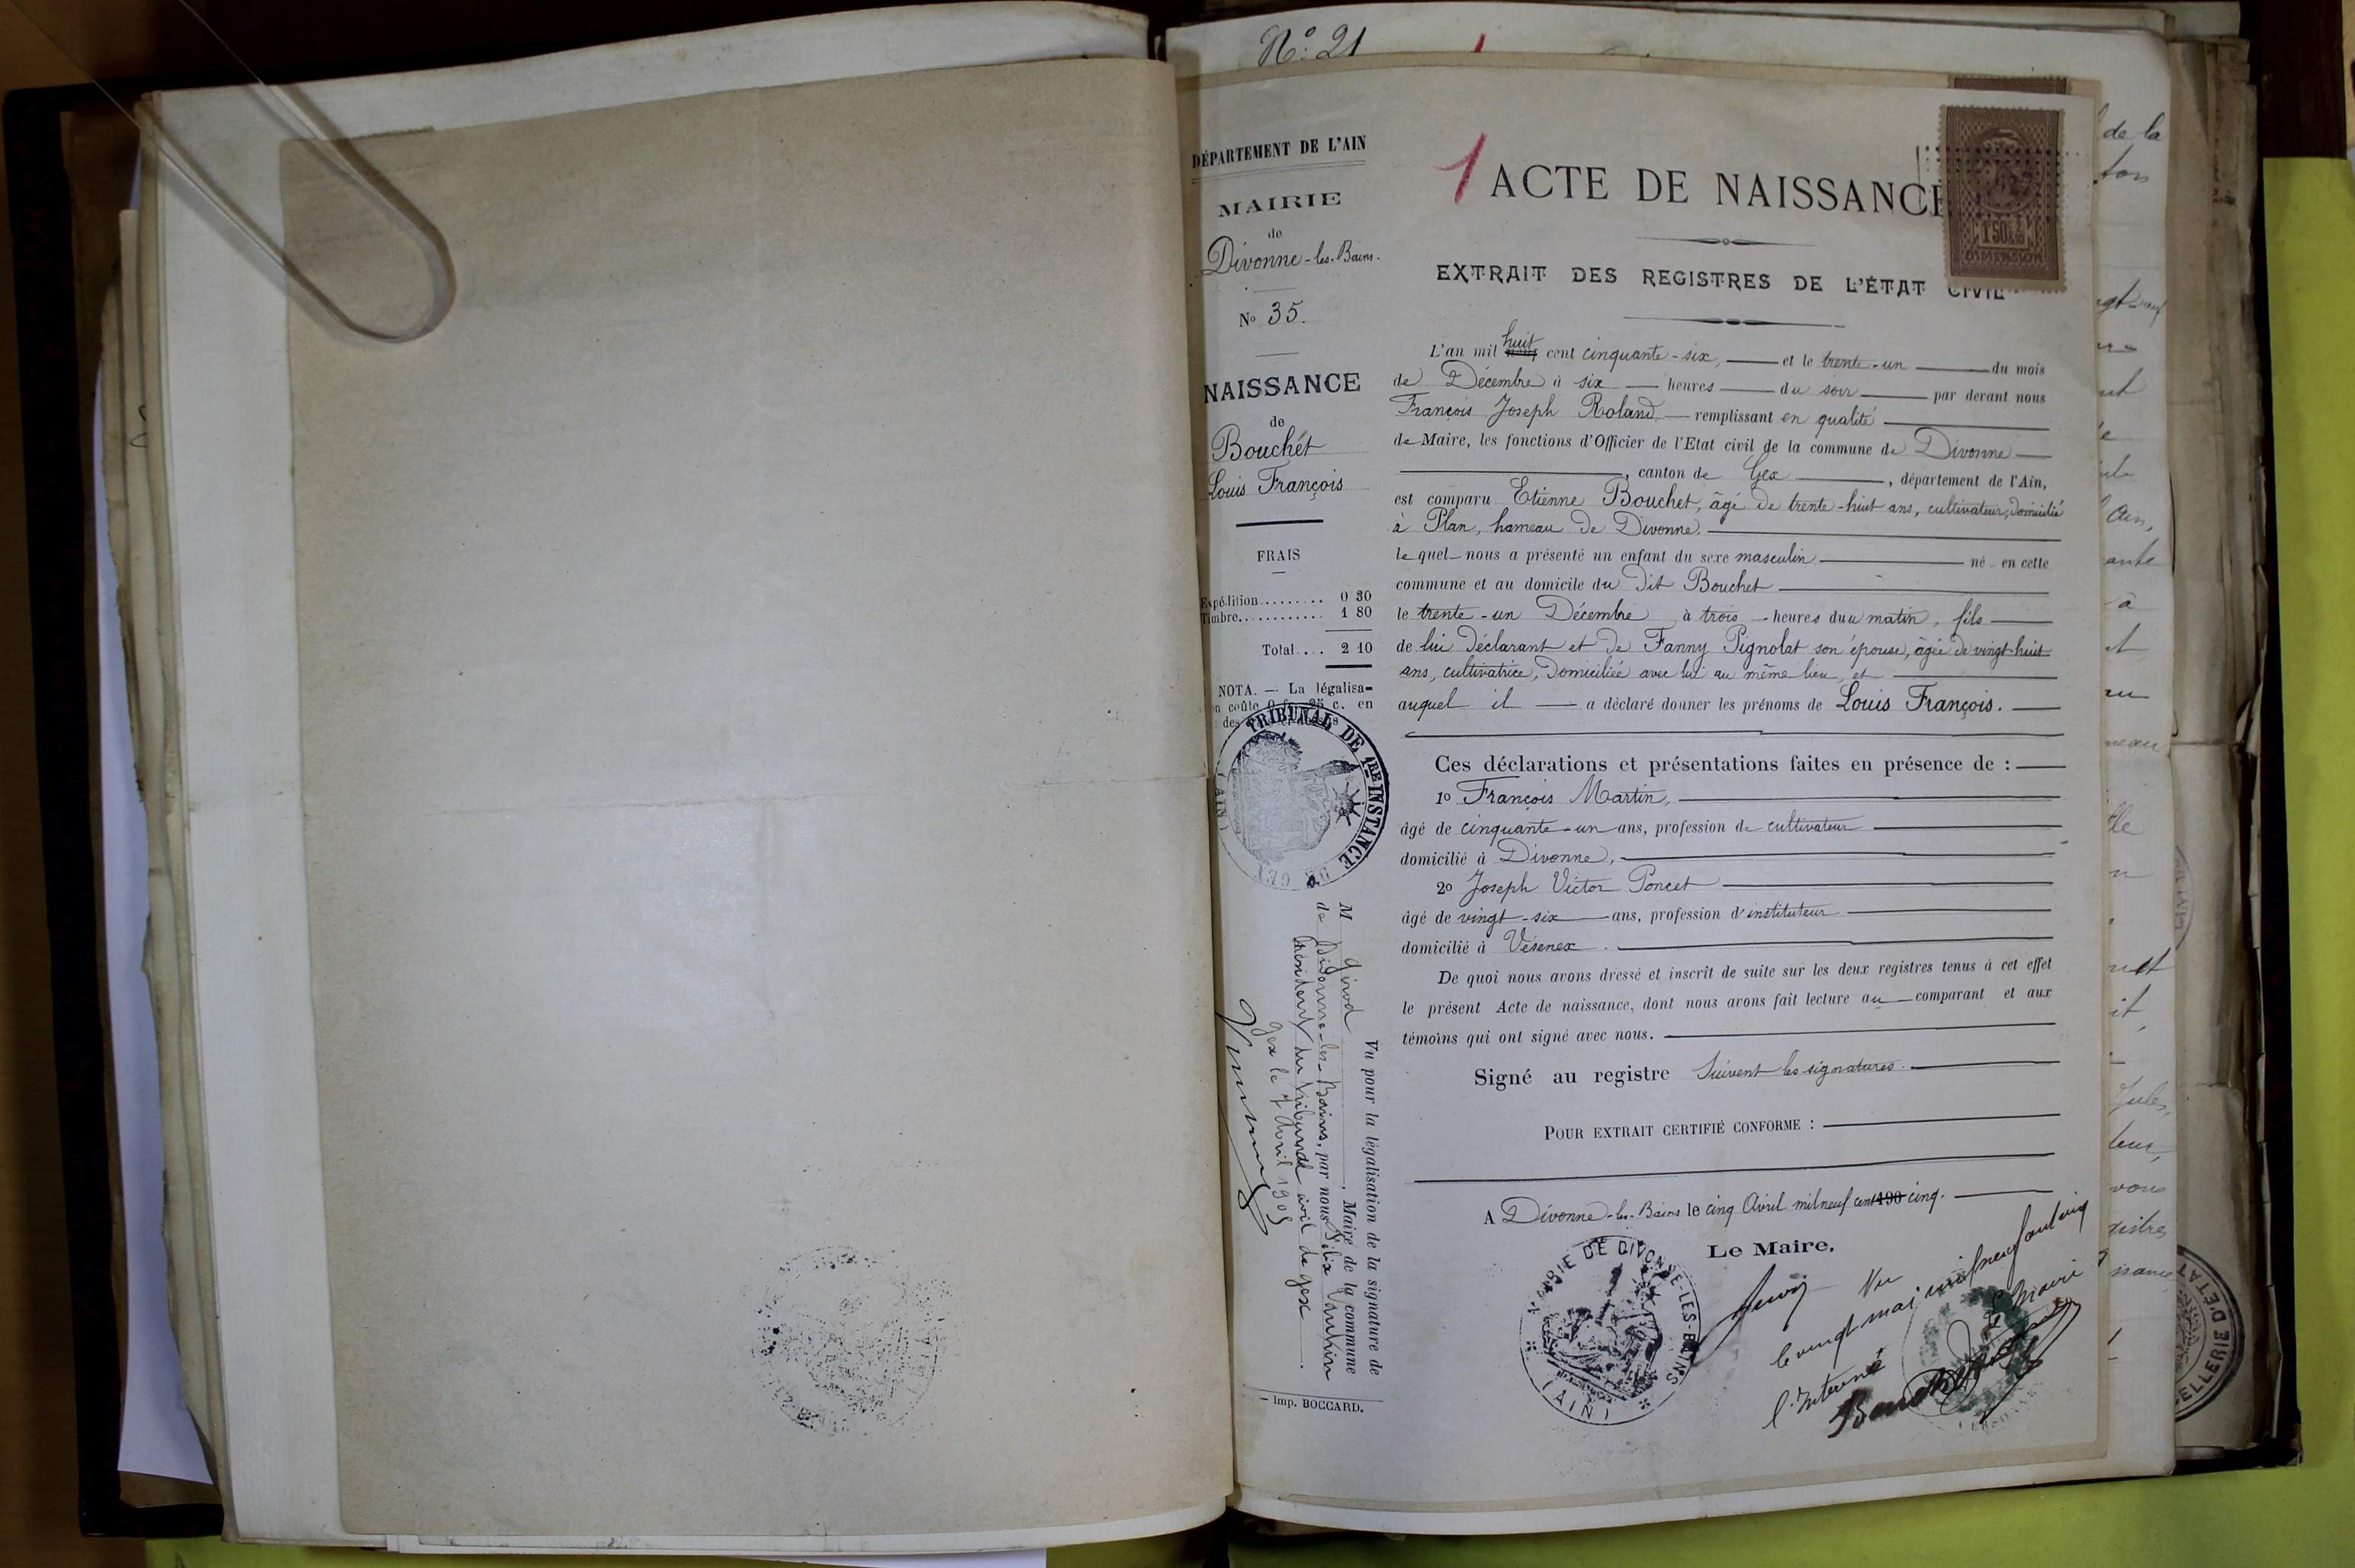 N° 21
1
DÉPARTEMENT DE L'AIN
MAIRIE
de
Divonne-les-Bains.
N° 35.
NAISSANCE
de
Bouchet
Louis François
FRAIS
Expédition......... 0 30
Timbre............ 1 80
Total.... 2 10
NOTA. — La légalisa-
on coûte 0 fr. 25 c. en
des
TRIBUNAL DE 1RE INSTANCE DE GEX
(AIN)
Vu pour la légalisation de la signature de
M Girod, Maire de la commune
de Divonne-les-Bains, par nous Félix
Président du Tribunal civil de Gex.
Gex le 7 Avril 1905
— Imp. BOCCARD.
1 ACTE DE NAISSANCE
1F50
DIMENSION
EXTRAIT DES REGISTRES DE L'ÉTAT CIVIL
L'an mil huit cent cinquante-six, et le trente-un du mois
de Décembre à six heures du soir par devant nous
François Joseph Roland remplissant en qualité
de Maire, les fonctions d'Officier de l'Etat civil de la commune de Divonne
, canton de Gex, département de l'Ain,
est comparu Etienne Bouchet, âgé de trente-huit ans, cultivateur, domicilié
à Plan, hameau de Divonne.
lequel nous a présenté un enfant du sexe masculin né en cette
commune et au domicile du dit Bouchet
le trente-un Décembre à trois heures du matin, fils
de lui déclarant et de Fanny Pignolat son épouse, âgée de vingt-huit
ans, cultivatrice, domiciliée avec lui au même lieu, et
auquel il a déclaré donner les prénoms de Louis François.
Ces déclarations et présentations faites en présence de :
1° François Martin,
âgé de cinquante-un ans, profession de cultivateur
domicilié à Divonne,
2° Joseph Victor Poncet
âgé de vingt-six ans, profession d'instituteur
domicilié à Vésenex.
De quoi nous avons dressé et inscrit de suite sur les deux registres tenus à cet effet
le présent Acte de naissance, dont nous avons fait lecture au comparant et aux
témoins qui ont signé avec nous.
Signé au registre Suivent les signatures.
POUR EXTRAIT CERTIFIÉ CONFORME :
A Divonne-les-Bains le cinq Avril mil neuf cent 190 cinq.
Le Maire,
MAIRIE DE DIVONNE-LES-BAINS
(AIN)
Vu
le vingt mai mil neuf cent cinq
Le Maire
de la
Ain,
ante
à
Jules,